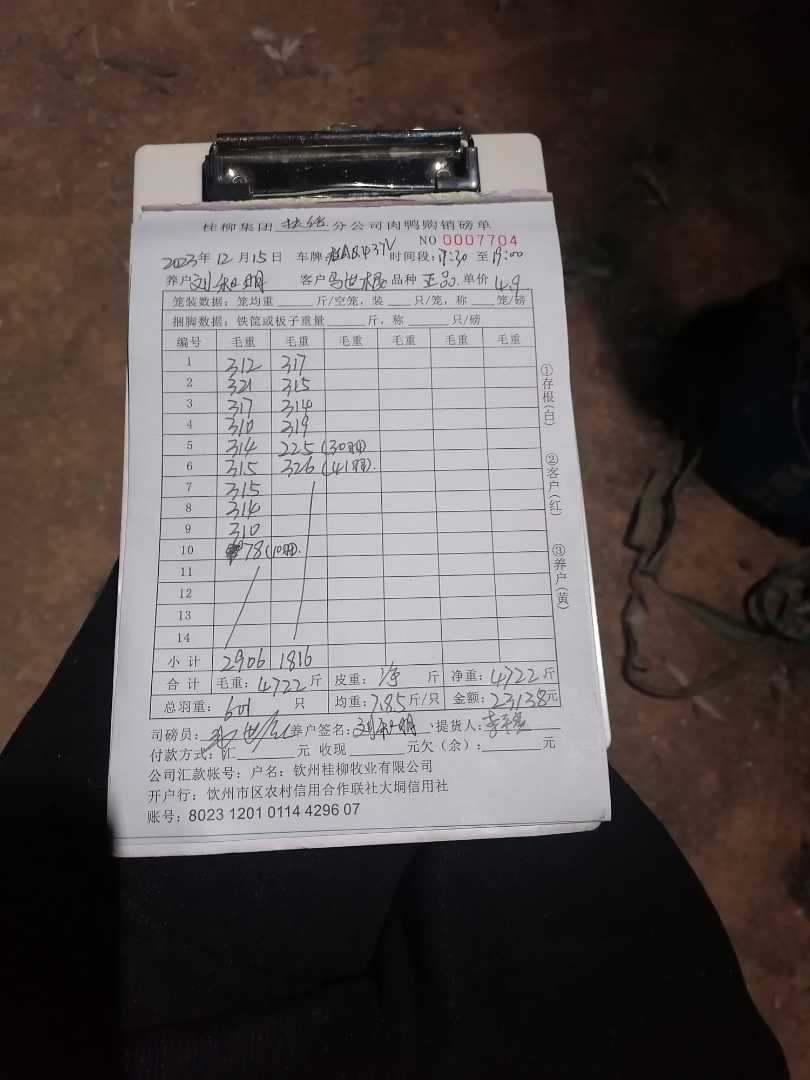 桂柳集团 扶绥 分公司肉鸭购销磅单
NO 0007704
2023年12月15日 车牌 时间段:17:30 至 19:00
养户 刘 明 客户 马世 品种 正品 单价 4.9
笼装数据:笼均重 斤/空笼,装 只/笼,称 笼/磅
捆脚数据:铁筐或板子重量 斤,称 只/磅
编号 毛重 毛重 毛重 毛重 毛重 毛重
1 312 317
2 321 315
3 317 314
4 310 319
5 314 225 (30羽)
6 315 326 (41羽)
7 315
8 314
9 310
10 78 (10羽)
11
12
13
14
小计 2906 1816
合计 毛重:4722 斤 皮重:净 斤 净重:4722 斤
总羽重:601 只 均重:7.85 斤/只 金额:23138元
司磅员: 养户签名:刘 明 提货人:
付款方式:汇 元 收现 元欠(余): 元
公司汇款帐号:户名:钦州桂柳牧业有限公司
开户行:钦州市区农村信用合作联社大垌信用社
账号:8023 1201 0114 4296 07
①存根(白)
②客户(红)
③养户(黄)